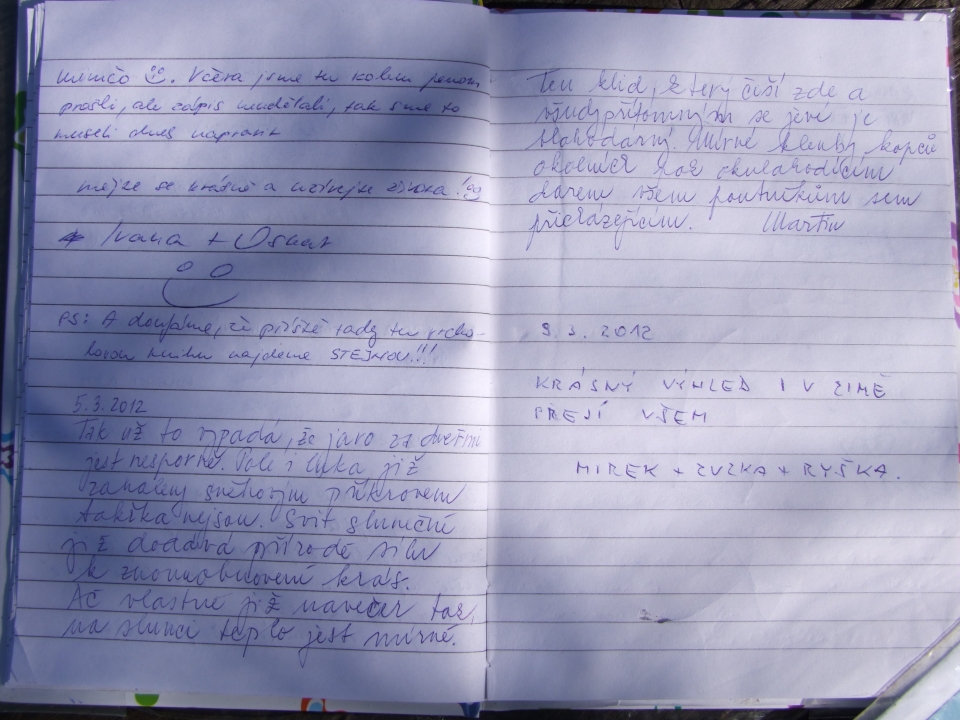 Včera jsme tu kolem jenom
prošli, ale zápis neudělali, tak jsme to
museli dnes napravit
mějte se krásně a užívejte života!
Ivana + Oskar
PS: A doufáme, že příště tady tu vrcho-
lovou knihu najdeme STEJNOU!!!
5.3.2012
Tak už to vypadá, že jaro za dveřmi
jest nesporně. Pole i luka již
zahaleny sněhovým příkrovem
takřka nejsou. Svit sluneční
již dodává přírodě sílu
k znovuobnovení krás.
Ač vlastně již navečer
na slunci teplo jest mírné.
Ten klid, který čiší zde a
všudypřítomným se jeví je
blahodárný. Mírné klenby kopců
okolních
darem všem poutníkům sem
přicházejícím. Martin
9.3.2012
KRÁSNÝ VÝHLED I V ZIMĚ
PŘEJÍ VŠEM
MIREK + ZUZKA + RYŠKA.